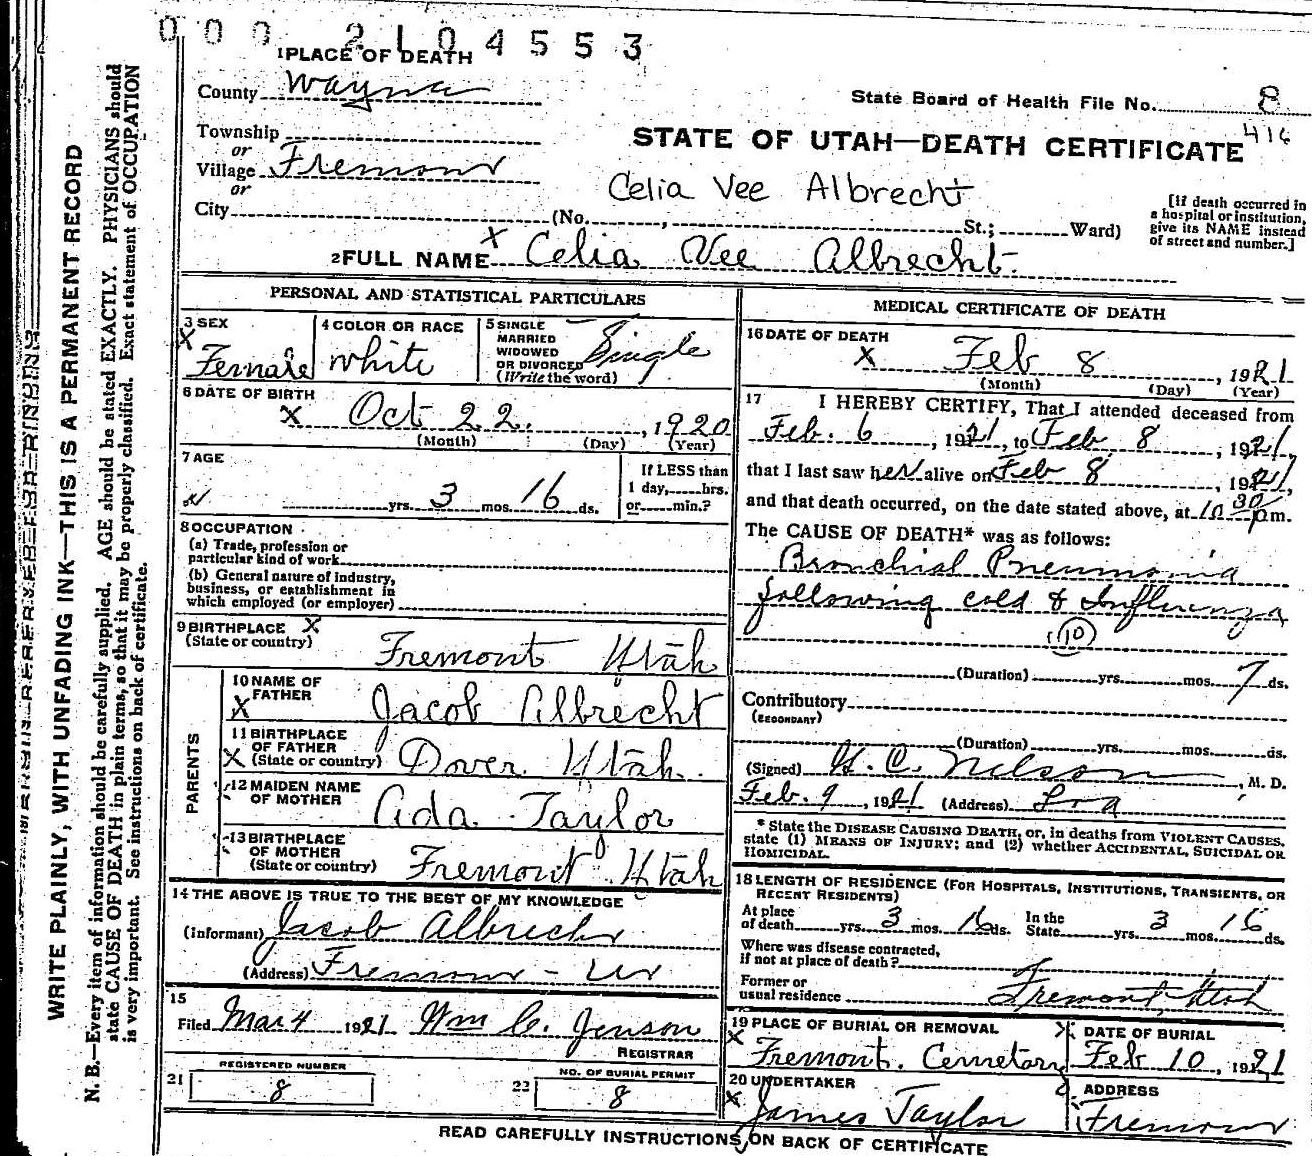 0 0 0 2 1 0 4 5 5 3
1 PLACE OF DEATH
County Wayne
State Board of Health File No. 8
416
Township
or
Village Fremont
or
City
STATE OF UTAH—DEATH CERTIFICATE
Celia Vee Albrecht
(No. , St.; Ward)
[If death occurred in
a hospital or institution,
give its NAME instead
of street and number.]
2 FULL NAME X Celia Vee Albrecht.
PERSONAL AND STATISTICAL PARTICULARS
3 SEX
X
Female
4 COLOR OR RACE
white
5 SINGLE
MARRIED
WIDOWED
OR DIVORCED
(Write the word)
Single
6 DATE OF BIRTH
X Oct 22. , 1920
(Month) (Day) (Year)
7 AGE
yrs. 3 mos. 16 ds.
If LESS than
1 day, hrs.
or min.?
8 OCCUPATION
(a) Trade, profession or
particular kind of work
(b) General nature of industry,
business, or establishment in
which employed (or employer)
9 BIRTHPLACE X
(State or country)
Fremont Utah
PARENTS
10 NAME OF
FATHER
X
Jacob Albrecht
11 BIRTHPLACE
OF FATHER
X (State or country)
Dover Utah.
12 MAIDEN NAME
OF MOTHER
Ada Taylor
13 BIRTHPLACE
OF MOTHER
(State or country)
Fremont Utah
14 THE ABOVE IS TRUE TO THE BEST OF MY KNOWLEDGE
(Informant) Jacob Albrecht
(Address) Fremont - Ut
15
Filed Mar 4 1921 Wm C. Jenson
REGISTRAR
21
REGISTERED NUMBER
8
22
NO. OF BURIAL PERMIT
8
MEDICAL CERTIFICATE OF DEATH
16 DATE OF DEATH
X Feb 8 , 1921
(Month) (Day) (Year)
17 I HEREBY CERTIFY, That I attended deceased from
Feb. 6 , 1921, to Feb 8 , 1921,
that I last saw her alive on Feb 8 , 1921,
and that death occurred, on the date stated above, at 10 30 p.m.
The CAUSE OF DEATH* was as follows:
Bronchial Pneumonia
following cold & Influenza
(10)
(Duration) yrs. mos. 7 ds.
Contributory
(SECONDARY)
(Duration) yrs. mos. ds.
(Signed) H. C. Nelson , M. D.
Feb. 9 , 1921 (Address) Loa
* State the DISEASE CAUSING DEATH, or, in deaths from VIOLENT CAUSES,
state (1) MEANS OF INJURY; and (2) whether ACCIDENTAL, SUICIDAL OR
HOMICIDAL.
18 LENGTH OF RESIDENCE (FOR HOSPITALS, INSTITUTIONS, TRANSIENTS, OR
RECENT RESIDENTS)
At place
of death yrs. 3 mos. 16 ds.
In the
State yrs. 3 mos. 16 ds.
Where was disease contracted,
if not at place of death?
Former or
usual residence Fremont, Utah
19 PLACE OF BURIAL OR REMOVAL
X Fremont. Cemetary
X DATE OF BURIAL
Feb 10 , 1921
20 UNDERTAKER
X James Taylor
ADDRESS
Fremont
READ CAREFULLY INSTRUCTIONS ON BACK OF CERTIFICATE
WRITE PLAINLY, WITH UNFADING INK—THIS IS A PERMANENT RECORD
N. B.—Every item of information should be carefully supplied. AGE should be stated EXACTLY. PHYSICIANS should
state CAUSE OF DEATH in plain terms, so that it may be properly classified. Exact statement of OCCUPATION
is very important. See instructions on back of certificate.